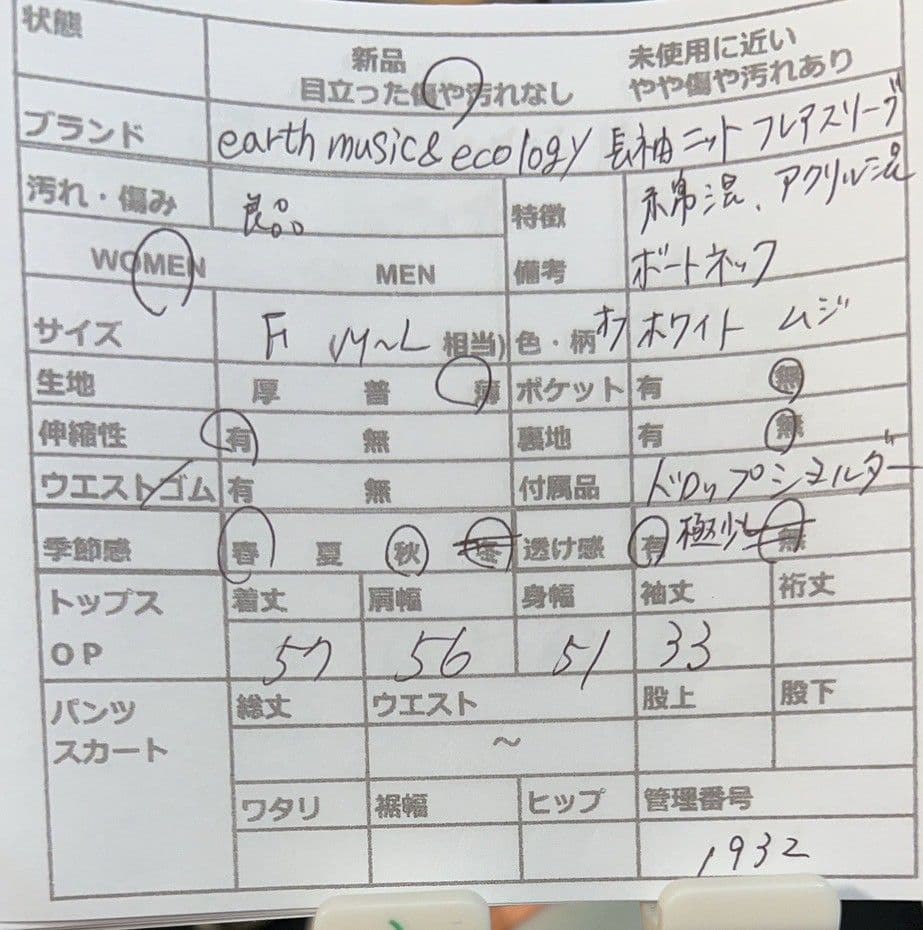 状態 新品 未使用に近い
目立った傷や汚れなし やや傷や汚れあり
ブランド earth music&ecology 長袖ニット フレアスリーブ
汚れ・傷み 良品 特徴 綿混、アクリル混
WOMEN MEN 備考 ボートネック
サイズ F M~L 相当) 色・柄 オフホワイト ムジ
生地 厚 普 薄 ポケット 有 無
伸縮性 有 無 裏地 有 無
ウエストゴム 有 無 付属品 ドロップショルダー
季節感 春 夏 秋 冬 透け感 有 極少 無
トップス 着丈 肩幅 身幅 袖丈 裄丈
OP 57 56 51 33
パンツ 総丈 ウエスト 股上 股下
スカート ~
ワタリ 裾幅 ヒップ 管理番号
1932